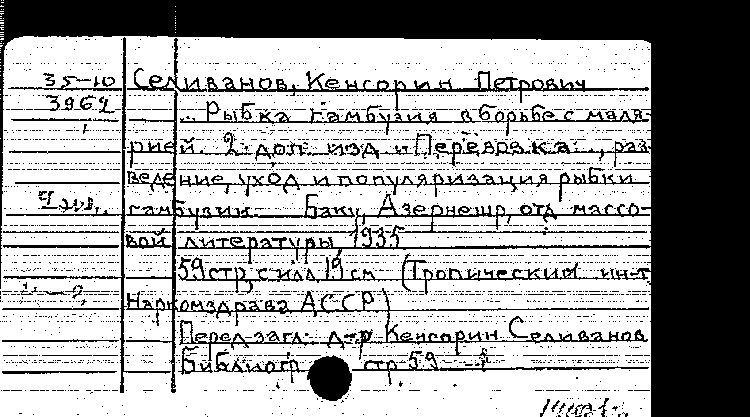 35-10 Селиванов, Кенсорин Петрович
3962 ... Рыбка гамбузия в борьбе с маля-
рией. 2 доп. изд и Перевозка ..., раз-
ведение, уход и популяризация рыбки
гамбузии. Баку, Азернешр, отд массо-
вой литературы, 1935
59 стр, с илл 19 см (Тропический ин-т
Наркомздрава АССР)
Перед загл: д-р Кенсорин Селиванов
Библиогр стр 59